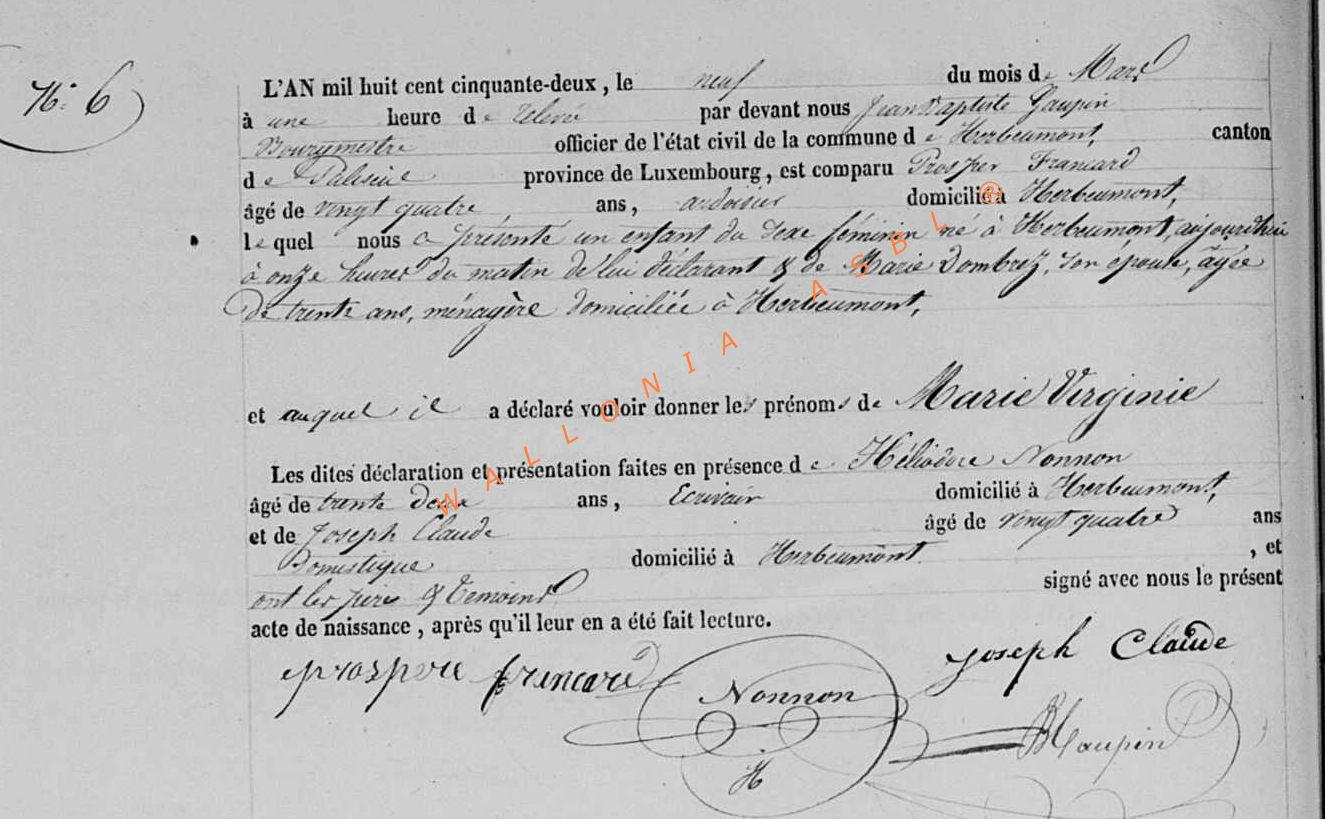 N° 6
L'AN mil huit cent cinquante-deux, le neuf du mois de Mars
à une heure de relevée par devant nous Jean Baptiste Gaupin
Bourgmestre officier de l'état civil de la commune de Herbeumont, canton
de Paliseul province de Luxembourg, est comparu Prosper Francard
âgé de vingt quatre ans, ardoisier domicilié à Herbeumont,
lequel nous a présenté un enfant du sexe féminin né à Herbeumont, aujourd'hui
à onze heures du matin de lui déclarant & de Marie Dombrez, son épouse, agée
de trente ans, ménagère domiciliée à Herbeumont,
et auquel il a déclaré vouloir donner les prénoms de Marie Virginie
Les dites déclaration et présentation faites en présence de Héliodore Nonnon
âgé de trente deux ans, Ecrivain domicilié à Herbeumont,
et de Joseph Claude âgé de vingt quatre ans
Domestique domicilié à Herbeumont. , et
ont les pere & temoins signé avec nous le présent
acte de naissance, après qu'il leur en a été fait lecture.
prospere francard Nonnon H Joseph Claude
Gaupin
WALLONIA ASBL ®